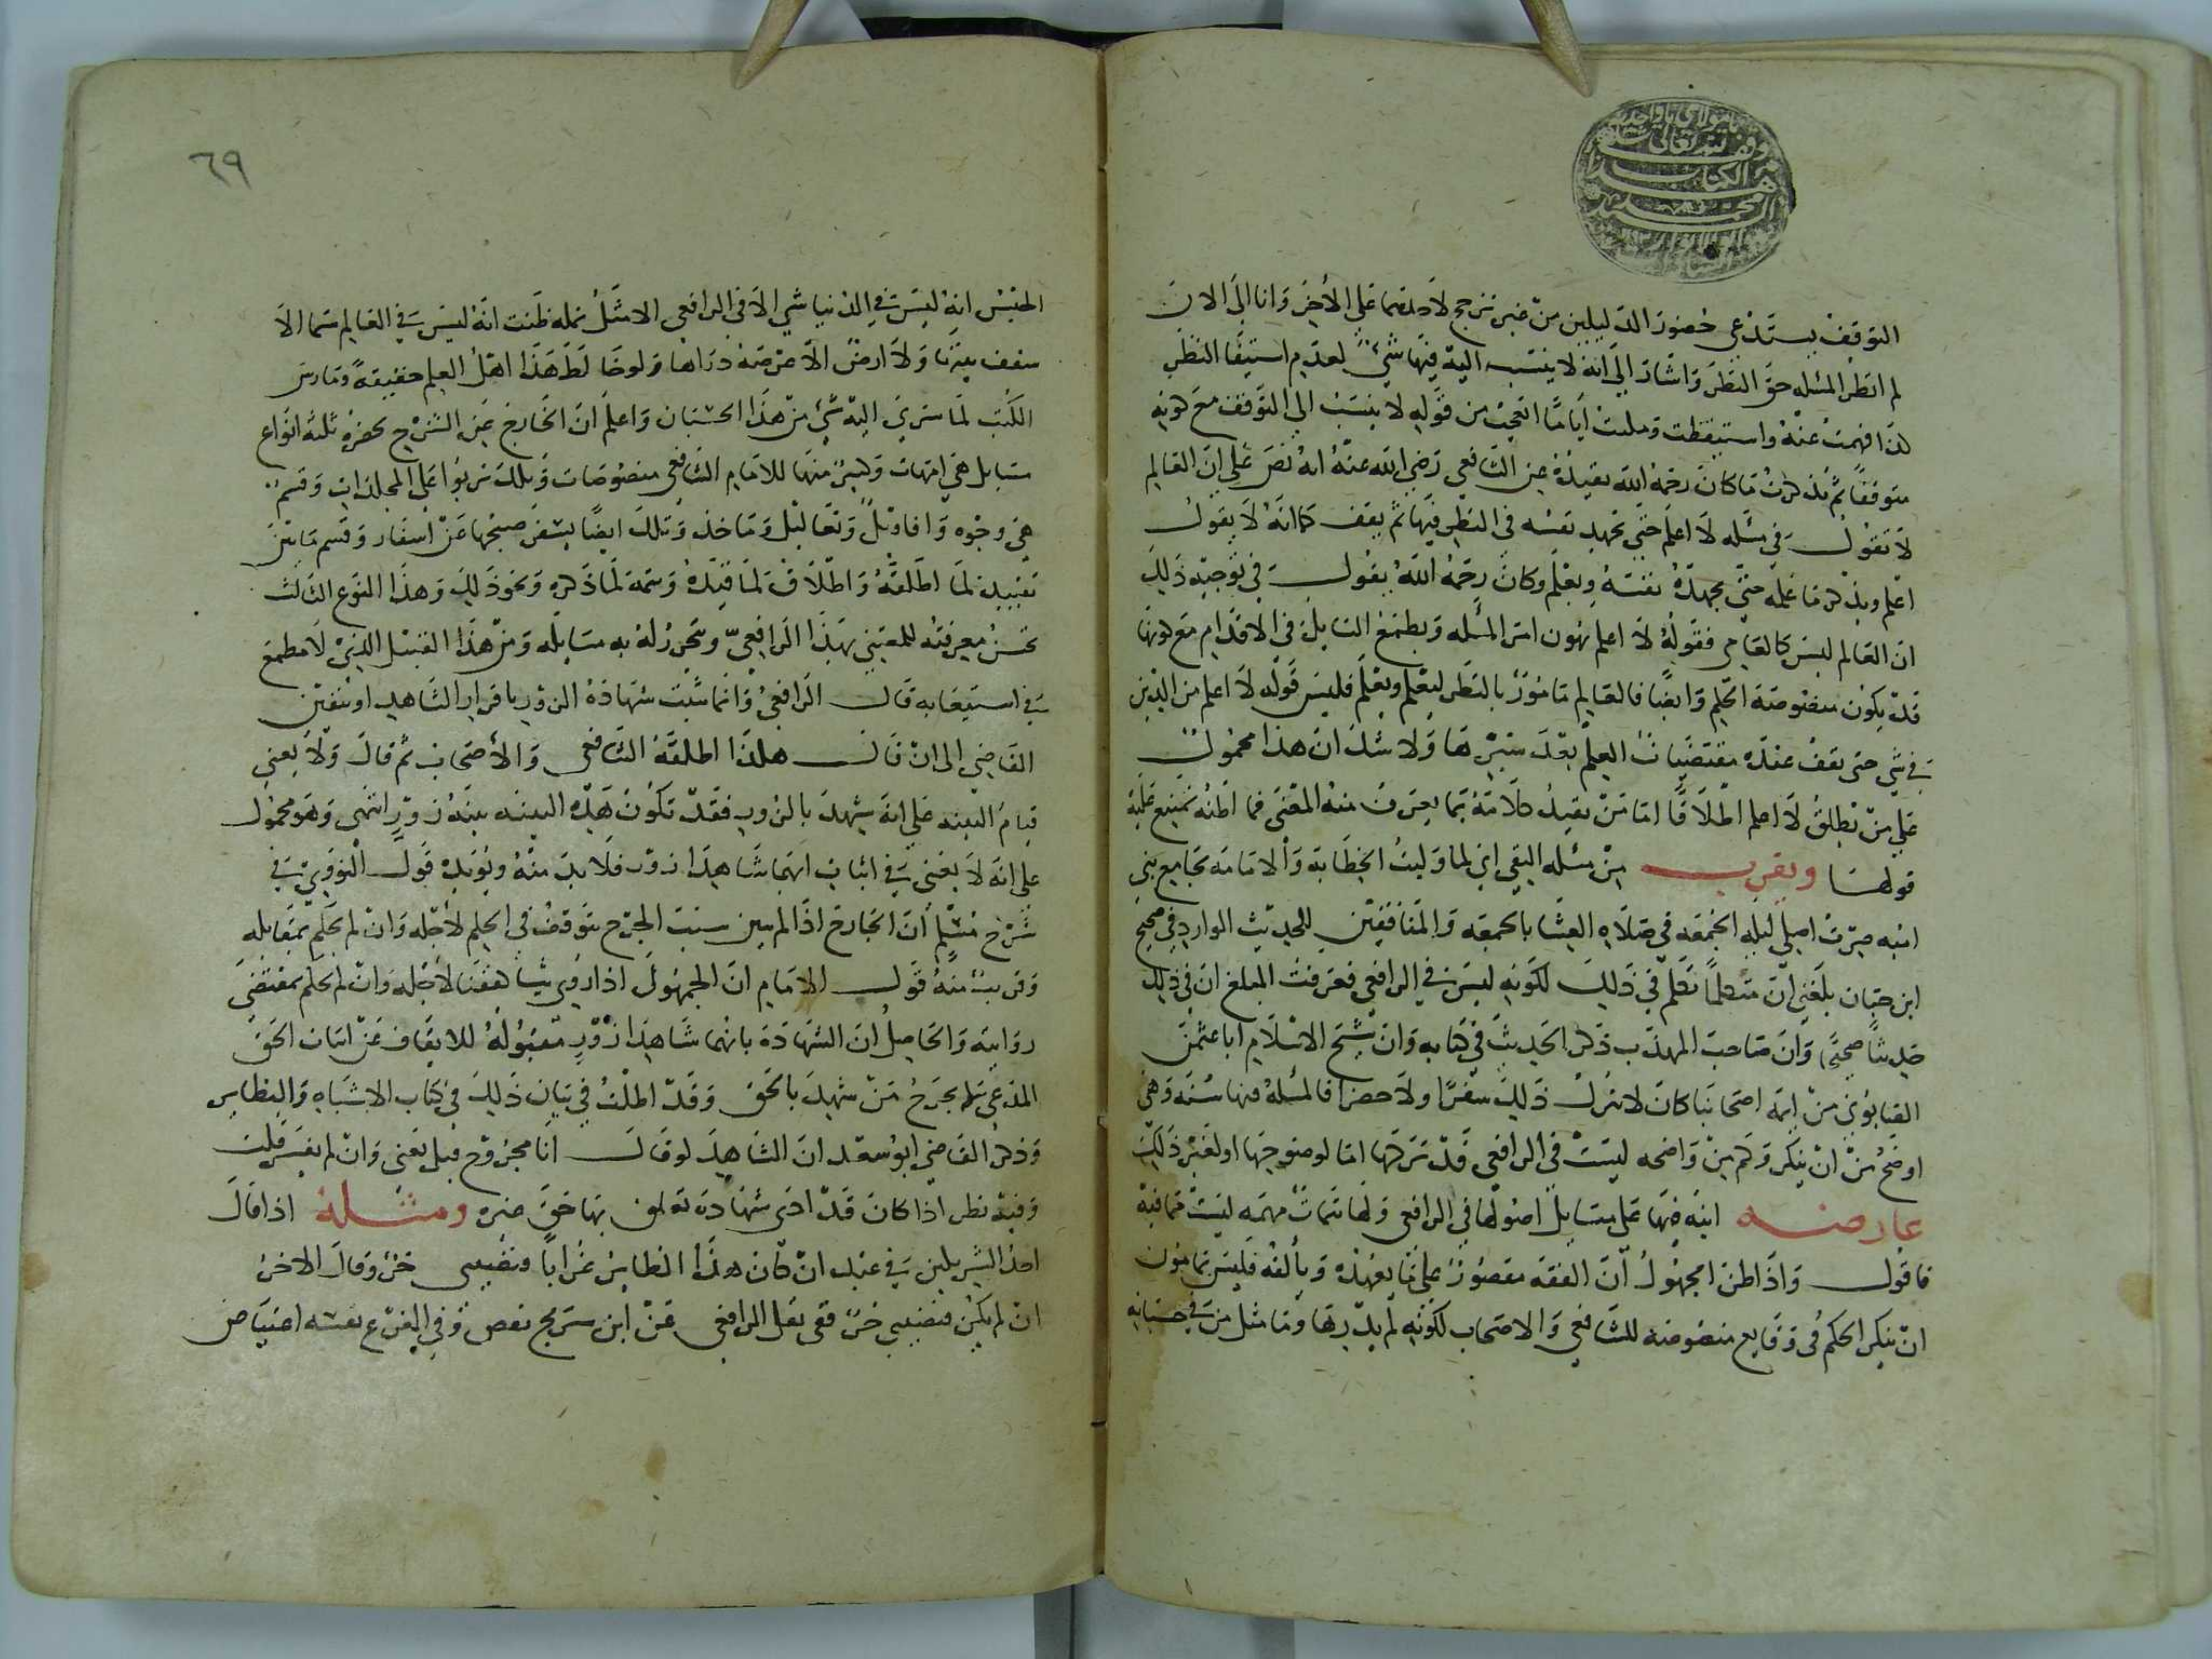 التوقف يستدعي حضور الدليلين من غير ترجيح لاحدهما على الاخر وانا الى الان
لم انظر المسئله حق النظر واشار الى انه لا ينسب اليه فيها شيء لعدم استيفا النظر
لذا فهمت عنه واستيقظت ومليت اياما اتعجب من قوله لا ينسب الى التوقف مع كونه
متوقفا ثم تذكرت ما كان رحمه الله يعيده عن الشافعي رضي الله عنه انه نص على ان العالم
لا نقول في مسئله لا اعلم حتى يجهد نفسه في النظر فيها ثم يقف كما انه لا يقول
اعلم ويذكر ما علمه حتى يجهد نفسه ويعلم وكان رحمه الله يقول في توجيه ذلك
ان العالم ليس كالعامي فقوله لا اعلم يهون امر المسئله ويطمع السايل في الاقدام مع كونها
قد يكون منصوصة الحكم وايضا فالعالم مامور بالنظر ليعلم ويعلم فليس قوله لا اعلم من الدين
في شي حتى يقف عنده مقتضيات العلم بعد سبرها ولا شك ان هذا محمول
على من يطلق لا اعلم اطلاقا اما من يقيد كلامه بما يعرف منه المعنى فما اظنه يمتنع عليه
قولها ويقرب من مسئله التقي اني لما وليت الخطابة والامامة بجامع بني
اميه صرت اصلي ليله الجمعه في صلاه العشا بالجمعه والمنافقين للحديث الوارد في صحيح
ابن حبان بلغني ان متكلما تكلم في ذلك لكونه ليس في الرافعي فعرفت المبلغ ان في ذلك
حديثا صحيحا وان صاحب المهذب ذكر الحديث في كتابه وان شيخ الاسلام ابا عثمن
الصابوني من ايمه اصحابنا كان لا يترك ذلك سفرا ولا حضرا فالمسئله فيها سنه وهي
اوضح من ان ينكر وكم من واضحه ليست في الرافعي قد تركها اما لوضوحها او لغير ذلك
عارضه انبه فيها على مسايل اصولها في الرافعي ولها تتمات مهمه ليست فيه
فاقول واذا ظن المجهول ان الفقه مقصور على ما يعهده ويألفه فليس بمامون
ان ينكر الحكم في وقايع منصوصة للشافعي والاصحاب لكونه لم يدرها وما مثل من في حسبانه
٦٩
الحبس انه ليس في الدنيا شي الا في الرافعي الا مثل نمله ظنت انه ليس في العالم سما الا
سقف بيتها ولا ارض الا عرصة دراها ولو خالط هذا اهل العلم حقيقة ومارس
الكتب لما سرى اليه شي من هذا الحسبان واعلم ان الخارج عن الشرح يحصره ثلثه انواع
مسايل هي امهات وكثير منها للامام الشافعي منصوصات وتلك تربوا على المجلدات وقسم
هي وجوه واقاويل وتعاليل وماخذ وتلك ايضا يسفر صبحها عن اسفار وقسم ما بين
تقييد لما اطلقه واطلاق لما قيده وتتمة لما ذكره ونحو ذلك وهذا النوع الثالث
تحسن معرفته للمعتني بهذا الرافعي وتحرر له به مسايله ومن هذا القبيل الذي لا مطمع
في استيعابه قال الرافعي وانما تثبت شهادة الزور باقرار الشاهد او تيقن
القاضي الى ان قال هكذا اطلقه الشافعي والاصحاب ثم قال ولا يعني
قيام البينه على انه شهد بالزور فقد تكون هذه البينه بينه زور انتهى وهو محمول
على انه لا يغني في اثبات انهما شاهدا زور فلا بد منه ويؤيده قول النووي في
شرح مسلم ان الجارح اذا لم يبين سبب الجرح يتوقف في الحكم لاجله وان لم يحكم بمقابله
وقريب منه قول الامام ان المجهول اذا روي شيا وقفنا لاجله وان لم نحكم بمقتضى
روايته والحاصل ان الشهادة بانهما شاهدا زور مقبوله للايقاف عن اثبات الحق
المدعى بجرح من شهد بالحق وقد اطلت في بيان ذلك في كتاب الاشباه والنظاير
وذكر القاضي ابو سعد ان الشاهد لو قال انا مجروح قبل يعني وان لم يفسر قلت
وفيه نظر اذا كان قد ادى شهادة تعلق بها حق غيره ومسئله اذا قال
احد الشريكين في عبد ان كان هذا الطاير غرابا فنصيبي حر وقال الاخر
ان لم يكن فنصيبي حر ففي نقل الرافعي عن ابن سريج نص وفي الفرع نفسه اعتياض